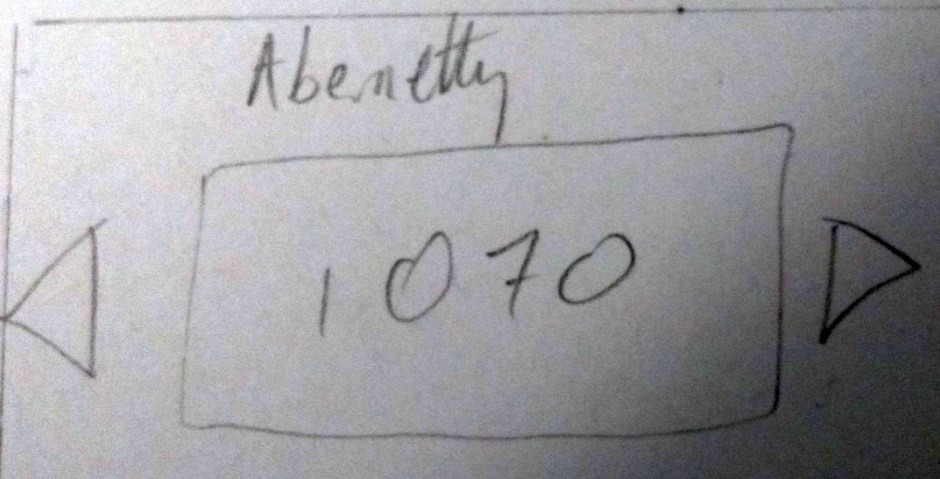 Abernethy
1070